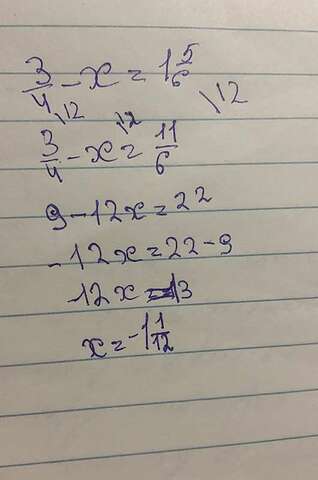 3/4 - x = 1 5/6
\12 \12 \12
3/4 - x = 11/6
9 - 12x = 22
-12x = 22 - 9
12x = -13
x = -1 1/12